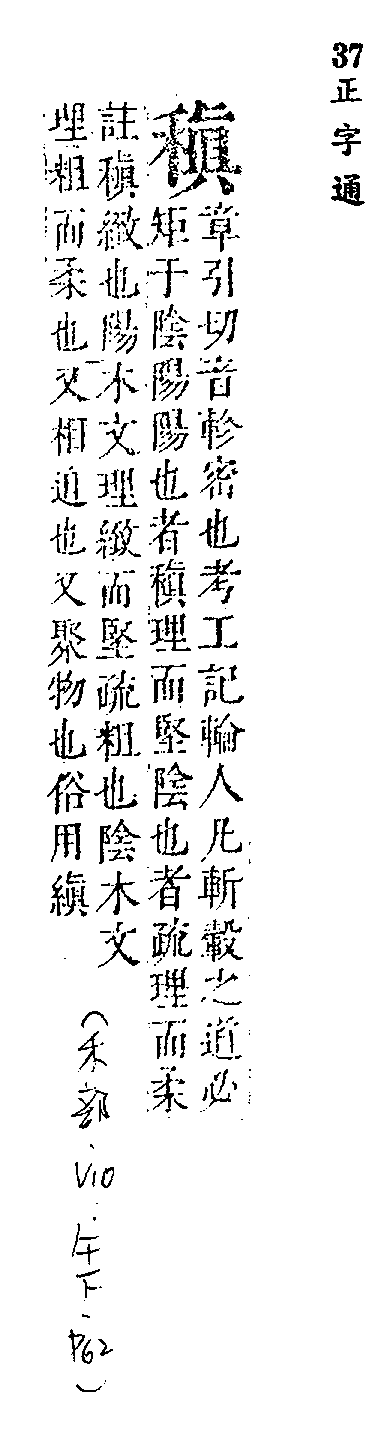 37正字通
稹
章引切音軫密也考工記輪人凡斬轂之道必
矩于陰陽陽也者稹理而堅陰也者疏理而柔
註稹緻也陽木文理緻而堅疏粗也陰木文
理粗而柔也又相迫也又聚物也俗用縝
(禾部.V10.午下.P62)